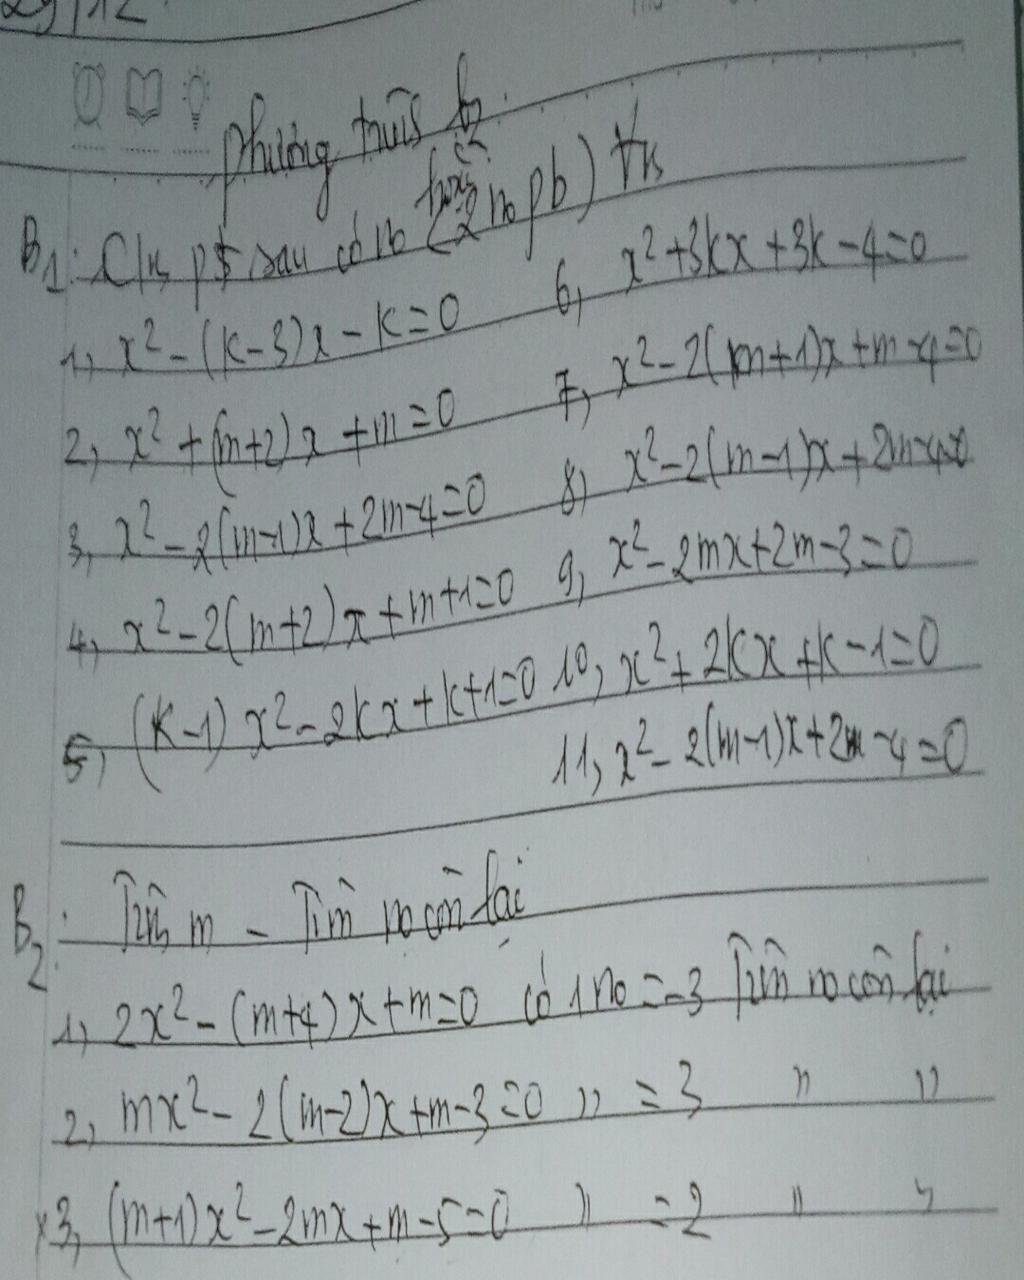 29/12
phương trình b2
B1: C/m pt sau có no (hoặc 2 no pb) ∀k
1, x² - (k-3)x - k=0
2, x² + (m+2)x + m=0
3, x² - 2(m-1)x + 2m-4=0
4, x² - 2(m+2)x + m+1=0
5, (k-1)x² - 2kx + k+1=0
6, x² + 3kx + 3k - 4=0
7, x² - 2(m+1)x + m-4=0
8) x² - 2(m-1)x + 2m-4=0
9, x² - 2mx + 2m-3=0
10, x² + 2kx + k-1=0
11, x² - 2(m-1)x + 2m-4=0
B2: Tìm m - Tìm no còn lại
1, 2x² - (m+4)x + m=0 có 1 no = -3 Tìm no còn lại
2, mx² - 2(m-2)x + m-3=0 " = 3 " "
x3, (m+1)x² - 2mx + m-5=0 " = 2 " "